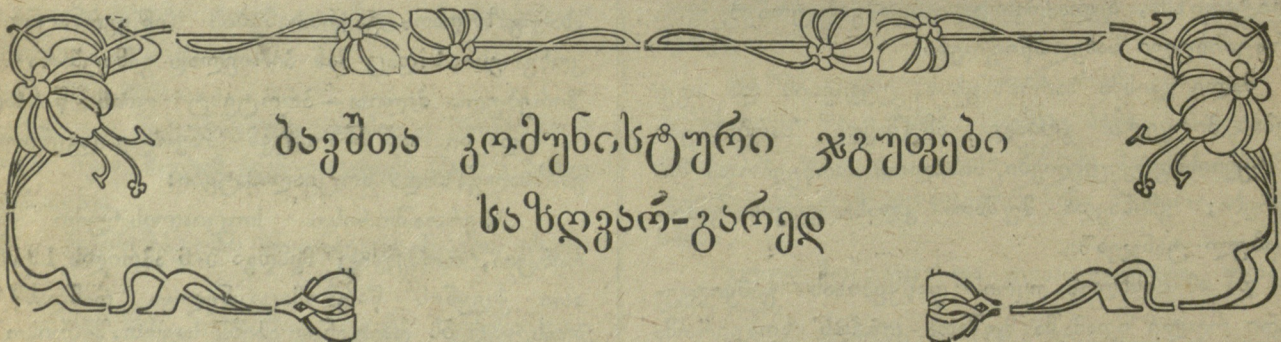 ბავშთა კომუნისტური ჯგუფები
საზღვარ-გარედ